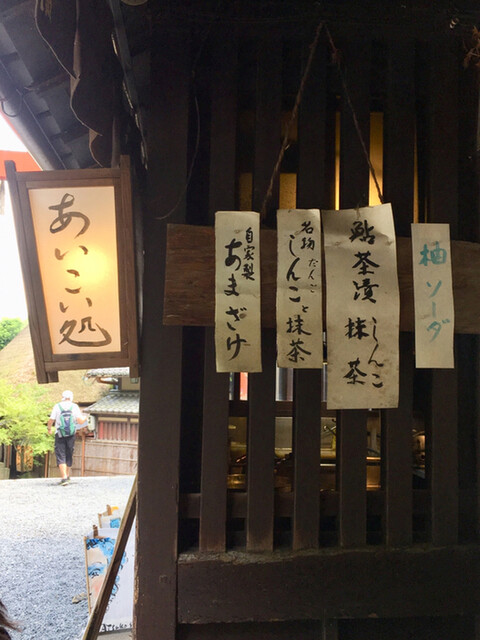 あいこい処
自家製
あまざけ
名物だんご
しんこと抹茶
鮎茶漬
しんこ
抹茶
柚ソーダ